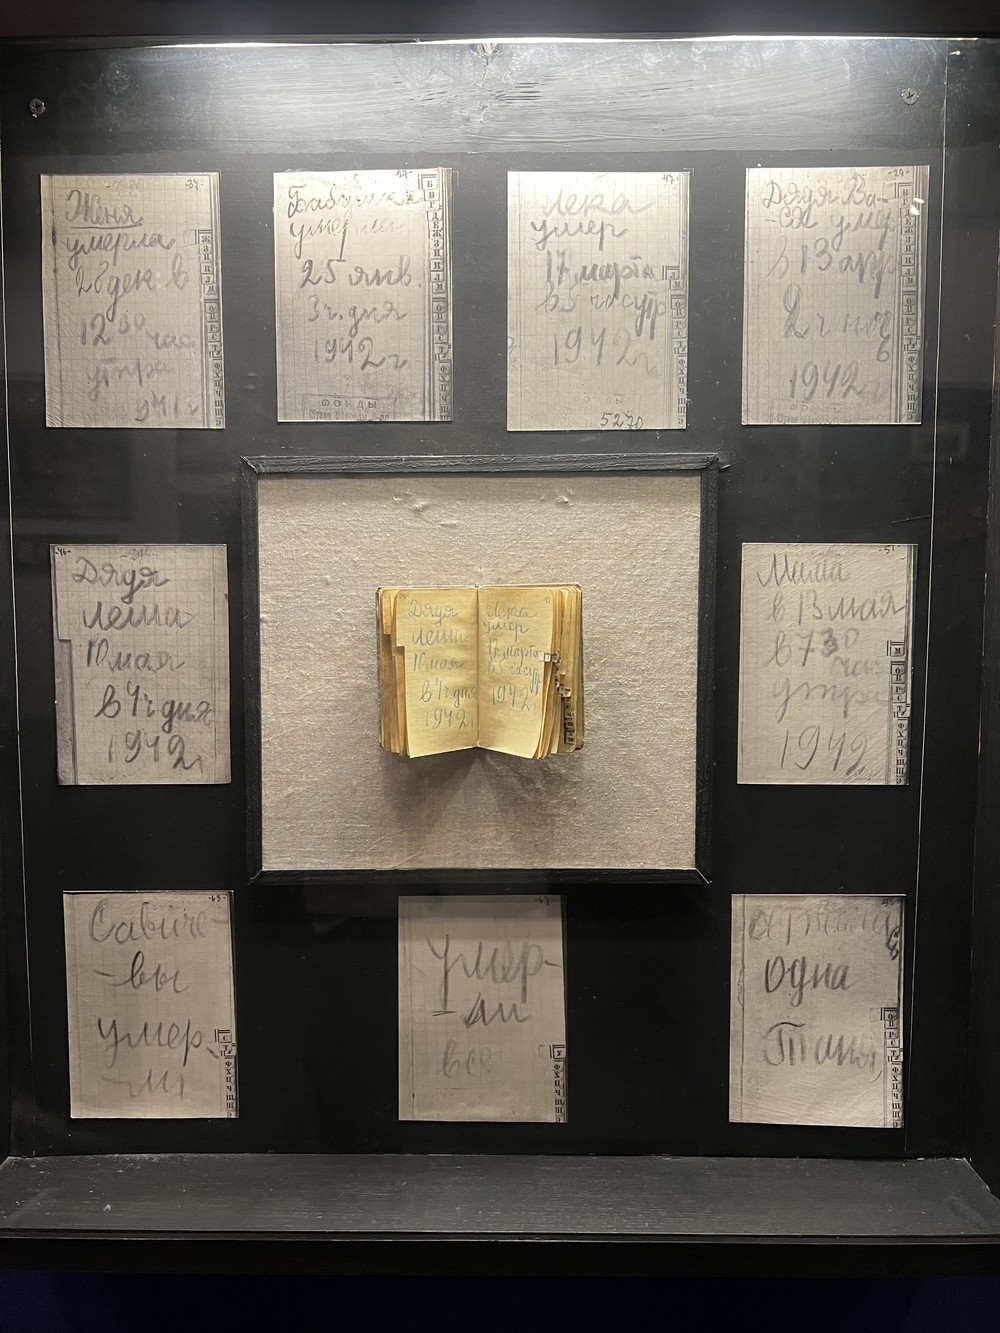 Женя
умерла
28 дек в
12 30 час
утра
1941 г
Бабушка
умерла
25 янв.
3 ч. дня
1942 г
ФОНДЫ
Лека
умер
17 марта
в 5 час утр
1942 г
5270
Дядя Ва-
-ся умер
в 13 апр
2 ч ноч
1942 г
Дядя
Леша
10 мая
в 4 ч дня
1942 г
Дядя
Леша
10 мая
в 4 ч дня
1942 г
Лека
умер
17 марта
в 5 час утр
1942 г
Мама
в 13 мая
в 7 30
час
утра
1942
Савиче-
-вы
умер
-ли
умер-
-ли
все
Осталась
одна
Таня